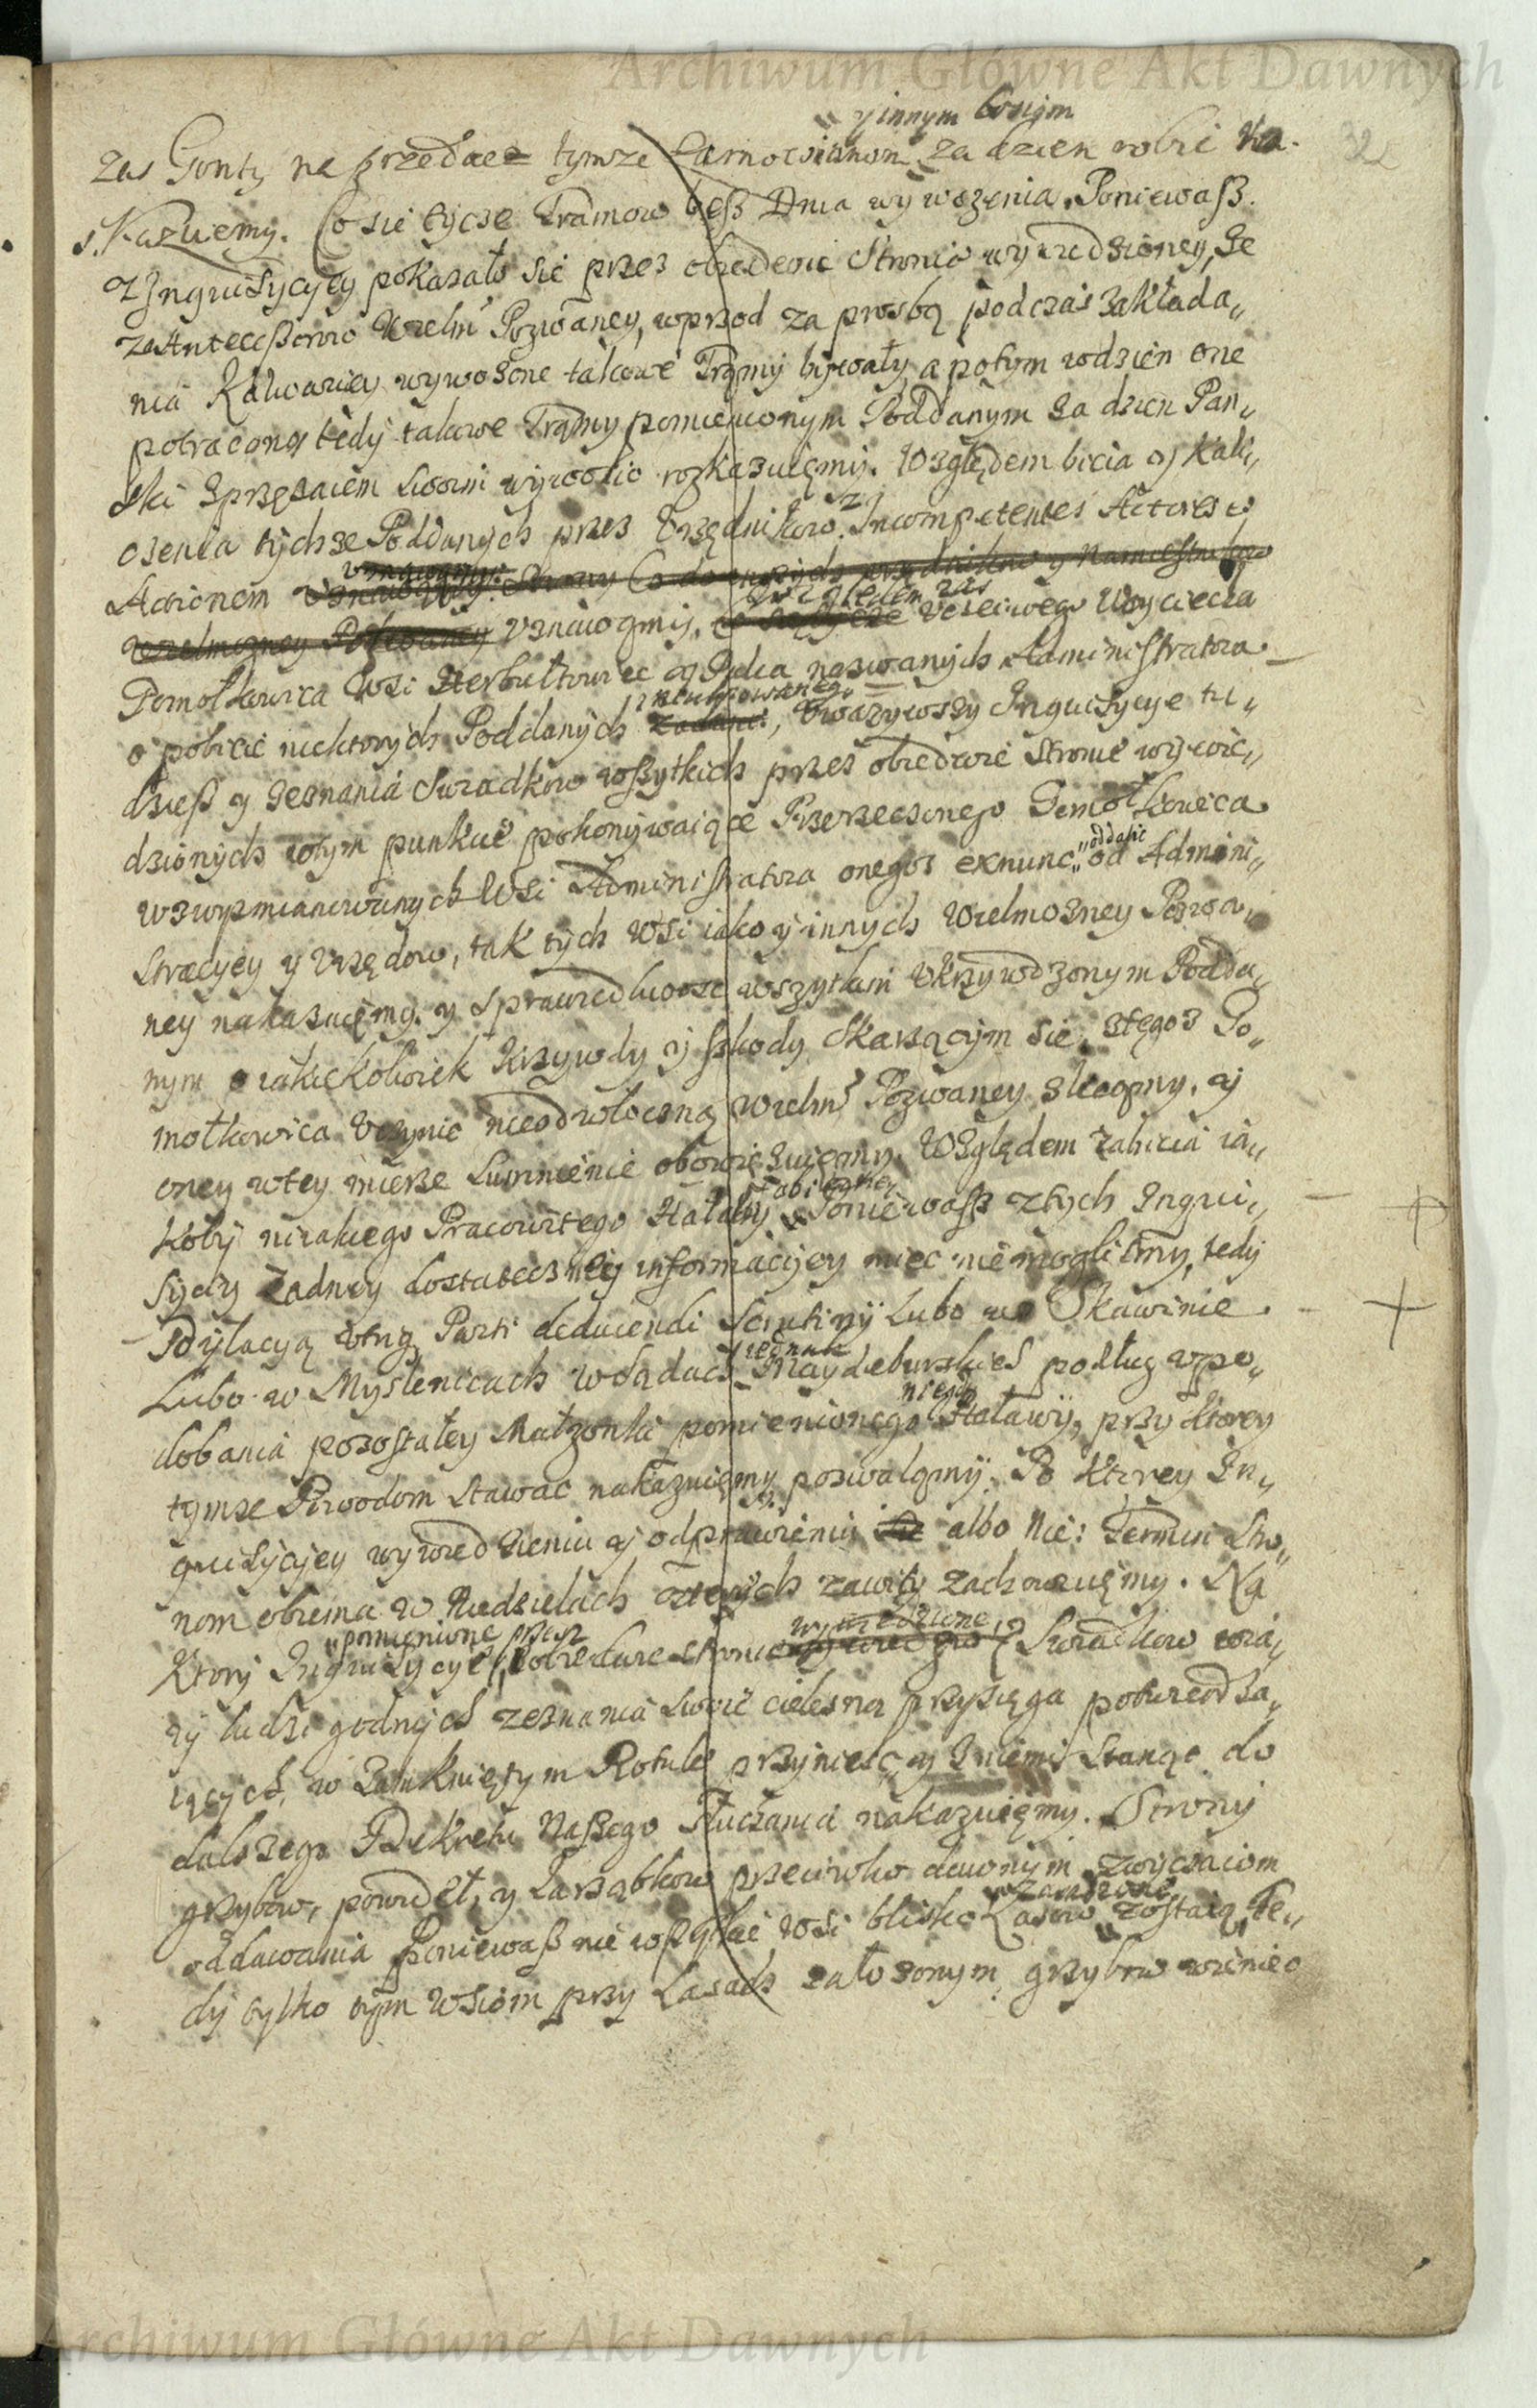 Archiwum Główne Akt Dawnych
32
y innym Wsiom
zas Gonty na przedaez tymze Zarnowianom za dzien robić na-
s. Kazuiemy. Co sie tycze Tramow bess Dnia wywozenia, Poniewasz
z Inquisycyey pokazało sie przez obiedwie Stronie wywiedzioney, ze
za Antecessorow Wielm Pozwaney, wprzod za prosbą podczas zakłada„
nia Kalwaryey wywozone takowe Tramy bywały, a potym w dzien one
potrącono, tedy takowe Tramy pomienionym Poddanym za dzien Pan„
ski Sprzęzaiem Swoim wywozic rozkazuięmy. Względem bicia y Kali„
czenia tychze Poddanych przez Urzędnikow, Incompetentes Actores
Actionem Uznawamy: Strony Co do inszych urzędnikow y Namiestnikow
Wielmozney Pozwaney Uznawamy, Względem zas Ucciwego Woyciecha
Pomotkowica Wsi Herbultowic y Pcha nazwanych Administratora
o pobicie niektorych Poddanych inculpowanego, Uwazywszy Inquisycye tu„
dziesz y zeznania Swiadkow wszytkich przez obiedwie Stronie wywie„
dzionych w tym punkcie pokonywaiące Przerzeczonego Pomotkowica
wzwyzmianowanych Wsi Administratora onegoz exnunc oddalic od Admini„
stracyey y Urzędow, tak tych Wsi iako y innych Wielmozney Pozwa„
ney nakazuięmy. y Sprawiedliwosc wszytkim Ukrzywdzonym Podda„
nym o iakiekolwiek krzywdy y szkody Skarzącym sie, z tegoz Po„
motkowica Uczynic nieodwłoczną Wielm Pozwaney zlecamy, y
oney w tey mierze Sumnienie obowięzuięmy. Względem Zabicia ia„
koby nieiakiego Pracowitego Hałaty Poniewasz z tych Inqui„
sycyi Zadney dostateczney informacyey miec nie moglismy, tedy
Dylacyą utrq Parti deducendi Scrutinÿ Lubo w Skawinie
Lubo w Myslenicach w Sądach iednak Maydeburskich podług upo„
dobania pozostałey Małzonki pomienionego niegdy Hałaty, przy ktorey
tymze Powodom Stawac nakazuięmy pozwalamy. Po ktorey In„
quisycyey wywiedzieniu y odprawieniu albo nie: Termin Stro„
nom obiema w Niedzielach czterych zawity zachowuięmy. Na
Ktory Inquisycye pomienione przez obiedwie Stronie wywiedzione, Swiadkow wia„
ry ludzi godnych zeznania Swoie cielesną przysięgą potwierdza„
iących, w Zamkniętym Rotule przyniesc y z niemi Stanąc do
dalszego Dekretu Naszego Słuchania nakazuięmy. Strony
grzybow, powideł, y Jarząbkow przeciwko dawnym zwyczaiom
oddawania Poniewasz nie wszytkie Wsi blisko Lasow zasadzone zostaią, te„
dy tylko tym Wsiom przy Lasach załozonym, grzybow wieniec
Archiwum Główne Akt Dawnych